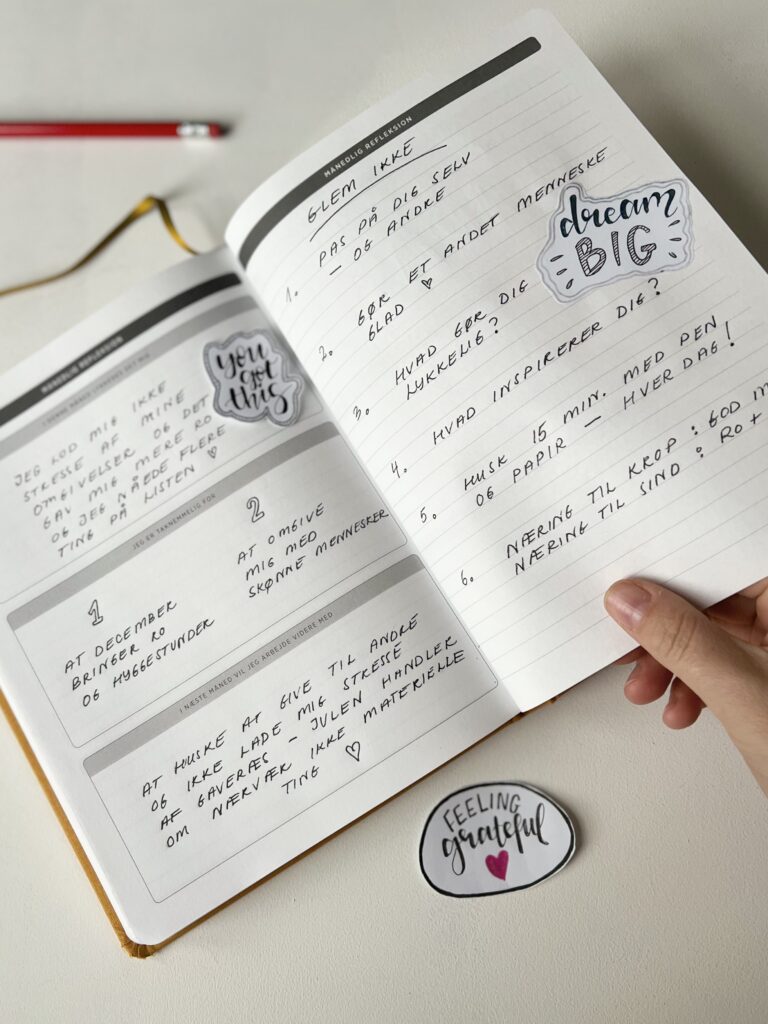 MÅNEDLIG REFLEKSION
I DENNE MÅNED LYKKEDES DET MIG
JEG LOD MIG IKKE
STRESSE AF MINE
OMGIVELSER OG DET
GAV MIG MERE RO
OG JEG NÅEDE FLERE
TING PÅ LISTEN ♡
you
got
this
JEG ER TAKNEMMELIG FOR
1
AT DECEMBER
BRINGER RO
OG HYGGESTUNDER
2
AT OMGIVE
MIG MED
SKØNNE MENNESKER
I NÆSTE MÅNED VIL JEG ARBEJDE VIDERE MED
AT HUSKE AT GIVE TIL ANDRE
OG IKKE LADE MIG STRESSE
AF GAVERÆS – JULEN HANDLER
OM NÆRVÆR IKKE MATERIELLE
TING ♡
MÅNEDLIG REFLEKSION
GLEM IKKE
1. PAS PÅ DIG SELV
– OG ANDRE
2. GØR ET ANDET MENNESKE
GLAD ♡
3. HVAD GØR DIG
LYKKELIG?
4. HVAD INSPIRERER DIG?
5. HUSK 15 MIN. MED PEN
OG PAPIR – HVER DAG!
6. NÆRING TIL KROP : GOD
NÆRING TIL SIND : RO +
dream
BIG
FEELING
grateful